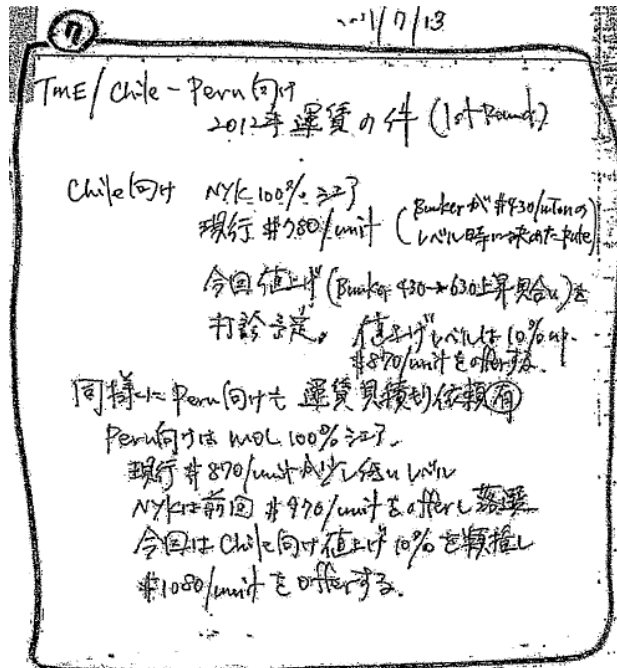 ⑦
11/7/13
TME/Chile-Peru向け
2012年運賃の件 (1st Round)
Chile向け NYK 100%シェア
現行 $780/unit (Bunkerが$430/mtonの
レベル時に決めたRate)
今回値上げ(Bunker 430→630上昇見合い)を
打診予定。 値上げレベルは10%up.
$870/unitをofferする.
同様にPeru向けも運賃見積り依頼有
Peru向けはMOL 100%シェア.
現行 $870/unitか少し低いレベル
NYKは前回 $970/unitをofferし落選
今回はChile向け値上げ10%を類推し
$1080/unitをofferする.